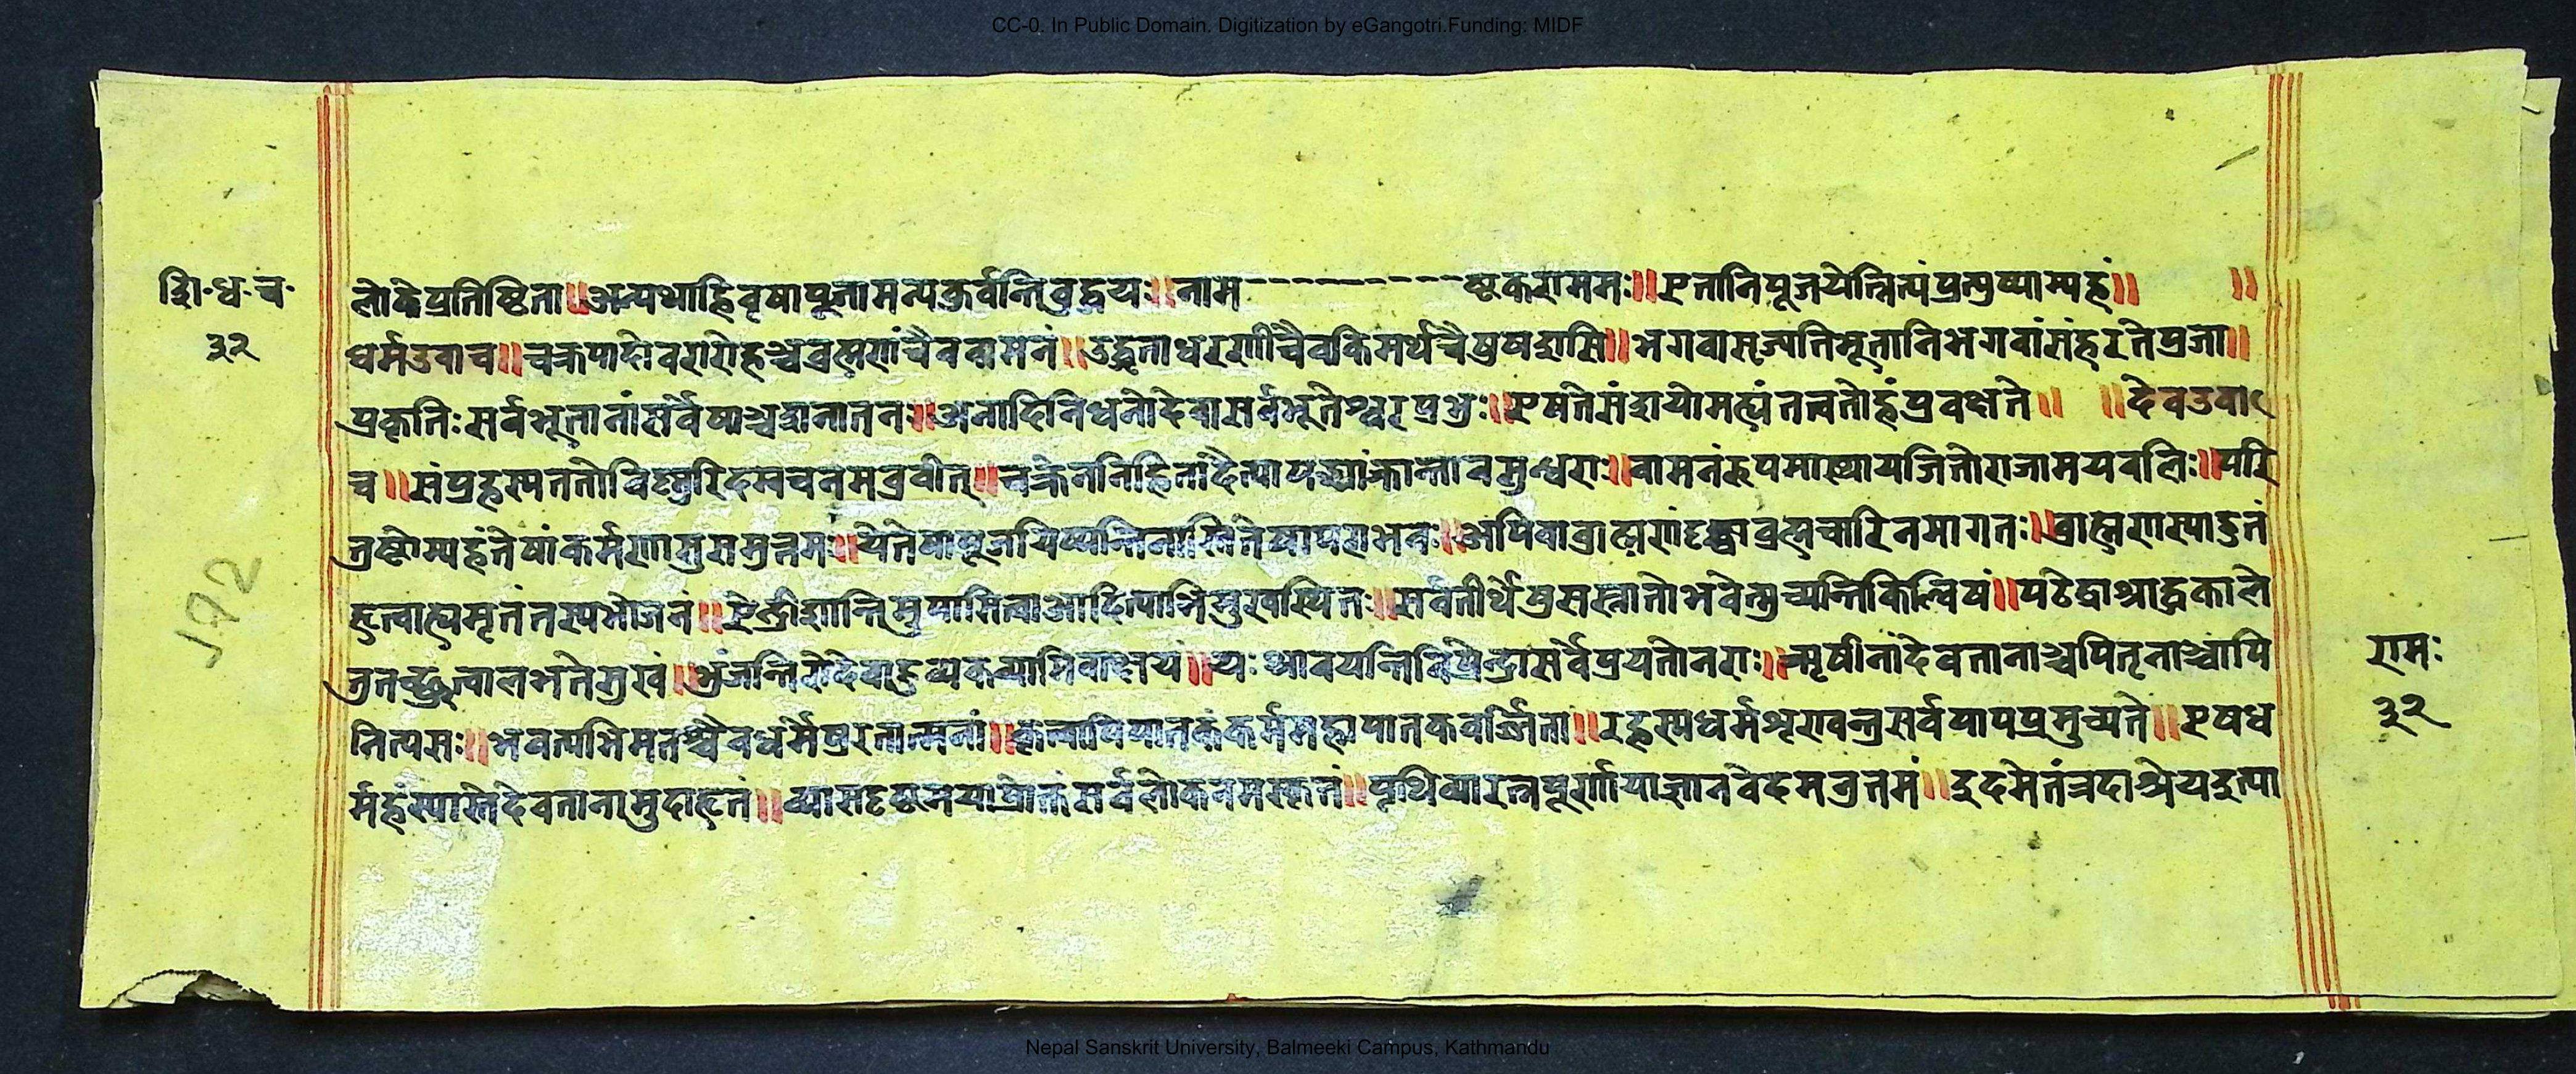 CC-0. In Public Domain. Digitization by eGangotri.Funding: MIDF
शि॰ध॰च॰
३२
लोकेप्रतिष्टिता॥अन्यथाहिवृषापूतामन्यकुर्वन्तिवुद्धयः॥नाम----------ष्टकराममः॥एतानिपूजयेन्नित्यंप्रत्युष्याम्यहं॥ ॥
धर्मउवाच॥चक्रपादोवराहोहश्चव्रह्मणांचैववामनं॥उद्धृताधरणींचैवकिमर्थंचैषुषद्यासि॥भगवासृज्यतिभूतानिभगवांसंहरतेप्रजा॥
प्रकृतिःसर्वभूतानांसर्वेषाञ्चशनातन॥अनादिनिधनोदेवासर्वभूतेश्वरप्रभुः॥एषतेसंशयोमह्यंतत्वतोहंप्रवक्षते॥ ॥देवउवा
च॥संप्रहस्यततोविष्णुरिदमचनमव्रवीत्॥चक्रेननिहितादैत्यापद्भ्यांक्रान्तावसुन्धरा॥वामनंरूपमास्थायजितोराजामयवलिः॥परि
तुष्टोस्म्यहंतेषांकर्मणासुसमुत्तम॥येतेषांपूजयिष्यन्तिनास्तितेषांपराभवः॥अपिवाव्राह्मणंदृष्ट्वाव्रह्मचारिनमागतः॥व्राह्मणस्याहुतं
हुत्वाह्यमृतंतस्यभोजनं॥ऐन्द्रीशान्तिमुपासित्वाआदित्याभिमुखस्थितः॥सर्वतीर्थेषुसस्नातोभवेत्मुच्यन्तिकिल्विषं॥पठेद्वाश्राद्धकाले
तुतच्छ्रुत्वालभतेसुखं॥भुंजन्तिसेदेवाहव्यकव्यामिवाक्षयं॥यःश्रावयन्तिविप्रेन्द्रासर्वेप्रयतोनराः॥ऋषीनांदेवतानाञ्चपितृनाञ्चापि
नित्यसः॥भवत्यभिमृतश्चैवधर्मेषुरतात्मनां॥कृत्वापिपातकंकर्ममहापातकवर्जिता॥रहस्यधर्मशृण्वन्तुसर्वपापप्रमुच्यते॥एषध
र्महंस्यास्तेदेवतानामुदाहृतं॥व्यासदृष्टमयाप्रोक्तंसर्वलोकनमस्कृतं॥पृथिव्यारत्नपूर्णायाज्ञानवेदमनुत्तमं॥
रामः
३२
Nepal Sanskrit University, Balmeeki Campus, Kathmandu